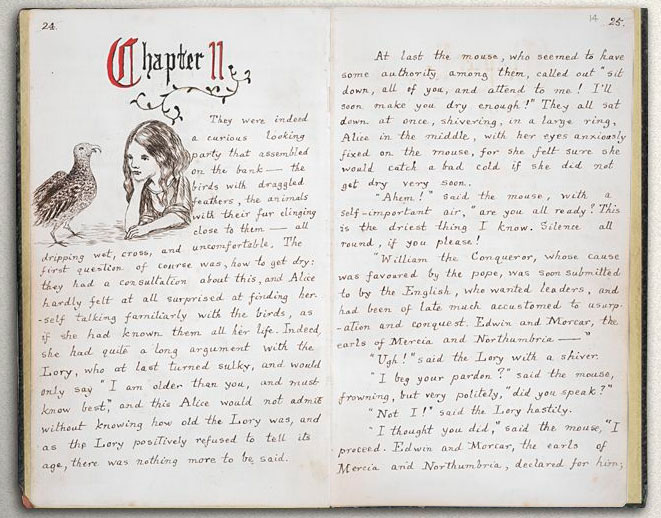 24.
Chapter II
They were indeed
a curious looking
party that assembled
on the bank — the
birds with draggled
feathers, the animals
with their fur clinging
close to them — all
dripping wet, cross, and uncomfortable. The
first question of course was, how to get dry:
they had a consultation about this, and Alice
hardly felt at all surprised at finding her-
-self talking familiarly with the birds, as
if she had known them all her life. Indeed,
she had quite a long argument with the
Lory, who at last turned sulky, and would
only say "I am older than you, and must
know best," and this Alice would not admit
without knowing how old the Lory was, and
as the Lory positively refused to tell its
age, there was nothing more to be said.
14
25.
At last the mouse, who seemed to have
some authority among them, called out "sit
down, all of you, and attend to me! I'll
soon make you dry enough!" They all sat
down at once, shivering, in a large ring,
Alice in the middle, with her eyes anxiously
fixed on the mouse, for she felt sure she
would catch a bad cold if she did not
get dry very soon.
"Ahem!" said the mouse, with a
self-important air, "are you all ready? This
is the driest thing I know. Silence all
round, if you please!
"William the Conqueror, whose cause
was favoured by the pope, was soon submitted
to by the English, who wanted leaders, and
had been of late much accustomed to usurp-
-ation and conquest. Edwin and Morcar, the
earls of Mercia and Northumbria — "
"Ugh!" said the Lory with a shiver.
"I beg your pardon?" said the mouse,
frowning, but very politely, "did you speak?"
"Not I!" said the Lory hastily.
"I thought you did," said the mouse, "I
proceed. Edwin and Morcar, the earls of
Mercia and Northumbria, declared for him;